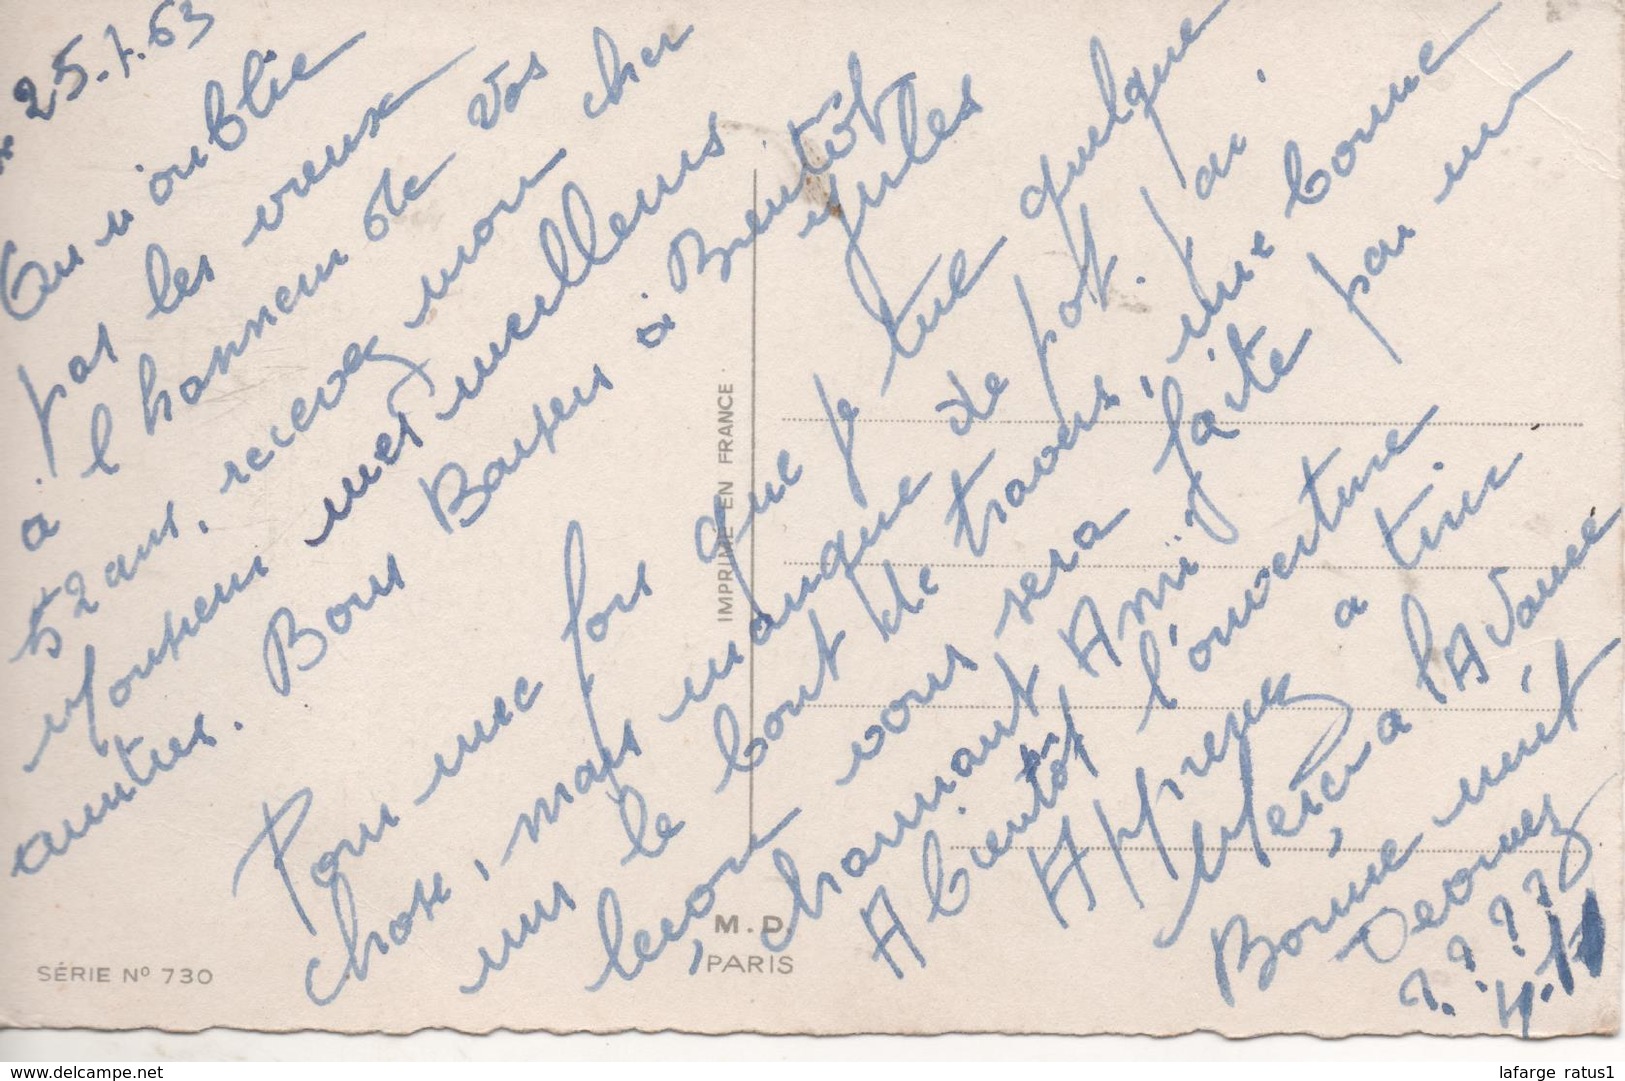 25.1.63
On n'oublie
pas les vieux
à l'honneur de vos
52 ans, recevez mon cher
Monsieur mes meilleurs
amitiés. Bons Baisers à Bientôt
Jules
Pour une fois que je tue quelque
chose, mais manque de pot j'ai
mis le bout de travers, une bonne
leçon vous sera faite par un
charmant Ami
A bientôt l'ouverture
Apprenez a tirer
Merci a l'Avance
Bonne nuit
Devinez
? ? ? ?
IMPRIMÉ EN FRANCE
M. D.
PARIS
SÉRIE Nº 730
www.delcampe.net
lafarge ratus1